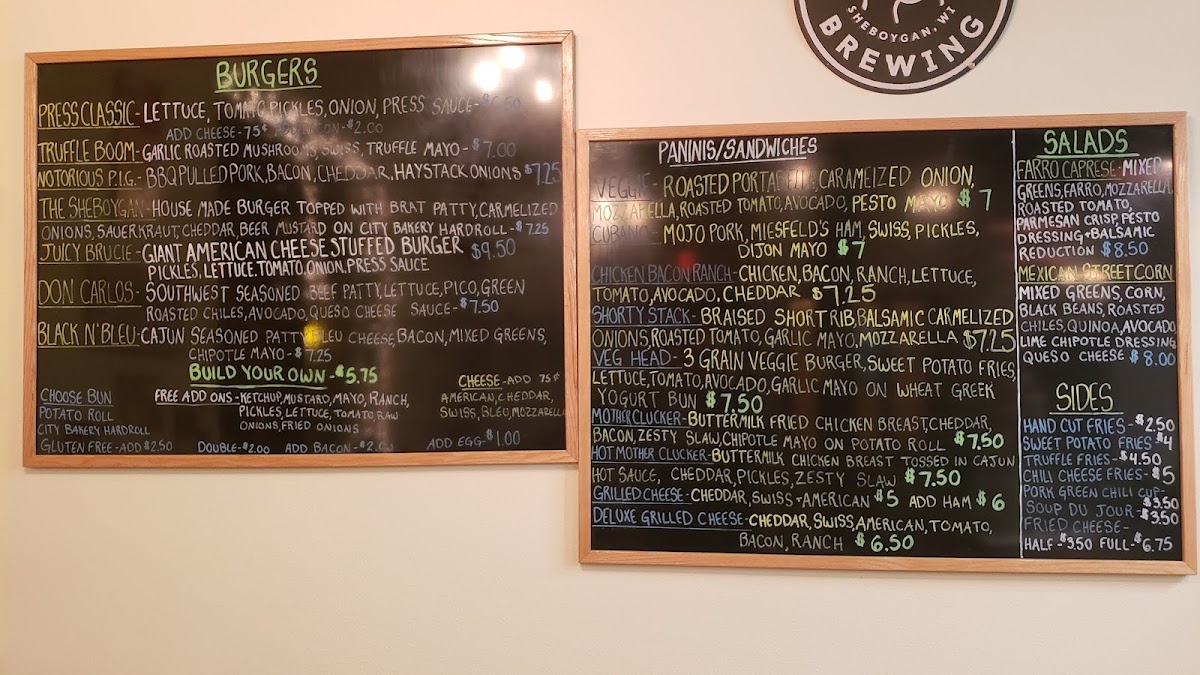 SHEBOYGAN, WI
BREWING
BURGERS
PRESS CLASSIC - LETTUCE, TOMATO, PICKLES, ONION, PRESS SAUCE -
ADD CHEESE - 75¢ ADD BACON - $2.00
TRUFFLE BOOM - GARLIC ROASTED MUSHROOMS, SWISS, TRUFFLE MAYO - $7.00
NOTORIOUS P.I.G. - BBQ PULLED PORK, BACON, CHEDDAR, HAYSTACK ONIONS $7.25
THE SHEBOYGAN - HOUSE MADE BURGER TOPPED WITH BRAT PATTY, CARMELIZED
ONIONS, SAUERKRAUT, CHEDDAR, BEER MUSTARD ON CITY BAKERY HARDROLL - $7.25
JUICY BRUCIE - GIANT AMERICAN CHEESE STUFFED BURGER $9.50
PICKLES, LETTUCE, TOMATO, ONION, PRESS SAUCE
DON CARLOS - SOUTHWEST SEASONED BEEF PATTY, LETTUCE, PICO, GREEN
ROASTED CHILES, AVOCADO, QUESO CHEESE SAUCE - $7.50
BLACK N' BLEU - CAJUN SEASONED PATTY, BLEU CHEESE, BACON, MIXED GREENS,
CHIPOTLE MAYO - $7.25
BUILD YOUR OWN - $5.75
CHOOSE BUN
POTATO ROLL
CITY BAKERY HARDROLL
GLUTEN FREE - ADD $2.50
FREE ADD ONS - KETCHUP, MUSTARD, MAYO, RANCH,
PICKLES, LETTUCE, TOMATO, RAW
ONIONS, FRIED ONIONS
DOUBLE - $2.00 ADD BACON - $2.00
CHEESE - ADD 75¢
AMERICAN, CHEDDAR,
SWISS, BLEU, MOZZARELLA
ADD EGG - $1.00
PANINIS/SANDWICHES
VEGGIE - ROASTED PORTABELLA, CARAMEIZED ONION,
MOZZARELLA, ROASTED TOMATO, AVOCADO, PESTO MAYO $7
CUBANO - MOJO PORK, MIESFELD'S HAM, SWISS, PICKLES,
DIJON MAYO $7
CHICKEN BACON RANCH - CHICKEN, BACON, RANCH, LETTUCE,
TOMATO, AVOCADO, CHEDDAR $7.25
SHORTY STACK - BRAISED SHORT RIB, BALSAMIC CARMELIZED
ONIONS, ROASTED TOMATO, GARLIC MAYO, MOZZARELLA $7.25
VEG HEAD - 3 GRAIN VEGGIE BURGER, SWEET POTATO FRIES,
LETTUCE, TOMATO, AVOCADO, GARLIC MAYO ON WHEAT GREEK
YOGURT BUN $7.50
MOTHER CLUCKER - BUTTERMILK FRIED CHICKEN BREAST, CHEDDAR,
BACON, ZESTY SLAW, CHIPOTLE MAYO ON POTATO ROLL $7.50
HOT MOTHER CLUCKER - BUTTERMILK CHICKEN BREAST TOSSED IN CAJUN
HOT SAUCE, CHEDDAR, PICKLES, ZESTY SLAW $7.50
GRILLED CHEESE - CHEDDAR, SWISS + AMERICAN $5 ADD HAM $6
DELUXE GRILLED CHEESE - CHEDDAR, SWISS, AMERICAN, TOMATO,
BACON, RANCH $6.50
SALADS
FARRO CAPRESE - MIXED
GREENS, FARRO, MOZZARELLA,
ROASTED TOMATO,
PARMESAN CRISP, PESTO
DRESSING + BALSAMIC
REDUCTION $8.50
MEXICAN STREET CORN
MIXED GREENS, CORN,
BLACK BEANS, ROASTED
CHILES, QUINOA, AVOCADO
LIME CHIPOTLE DRESSING
QUESO CHEESE $8.00
SIDES
HAND CUT FRIES - $2.50
SWEET POTATO FRIES - $4
TRUFFLE FRIES - $4.50
CHILI CHEESE FRIES - $5
PORK GREEN CHILI CUP - $3.50
SOUP DU JOUR - $3.50
FRIED CHEESE -
HALF - $3.50 FULL - $6.75